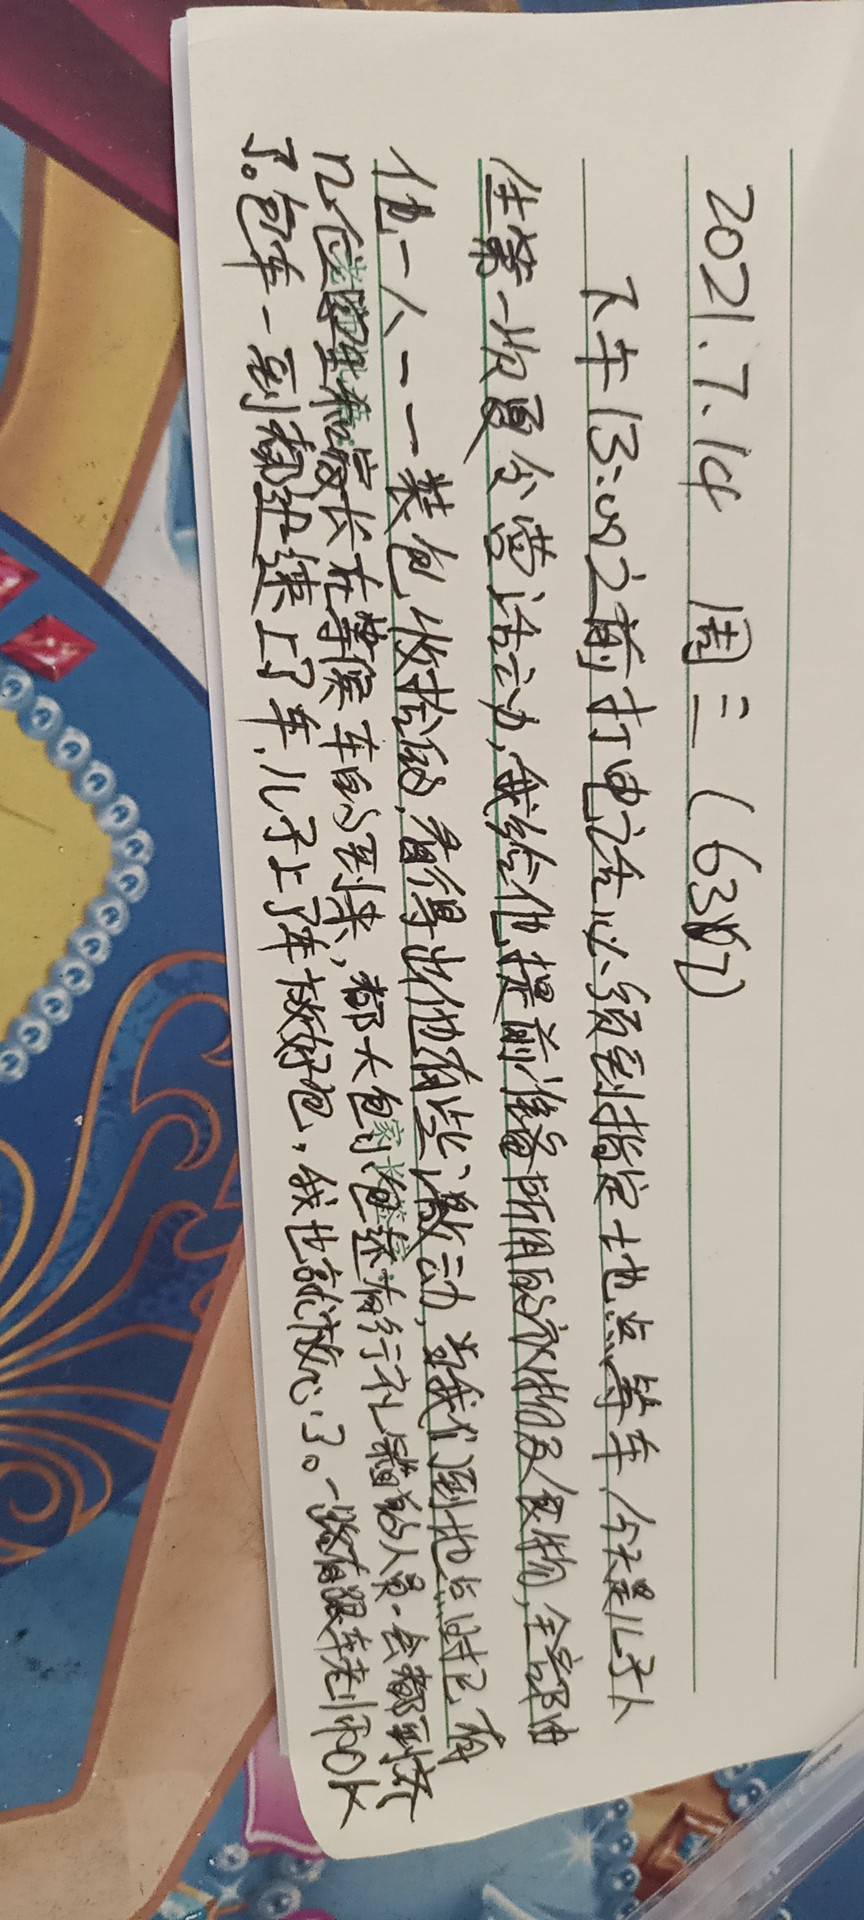 2021.7.14 周三 (63次)
下午13:00之前打电话必须到指定地点等车,今天是儿子人
生第一次夏令营活动,我给他提前准备所用的衣物及食物,全部由
他一人一一装包收拾的,看得出他有些激动,当我们到地点时已有
几位学生和家长在等候车的到来,都大包小包还有行礼箱的人员一会都到齐
了。包车一到都赶快上了车,儿子上了车放好包,我也就放心了。一路有跟车老师OK